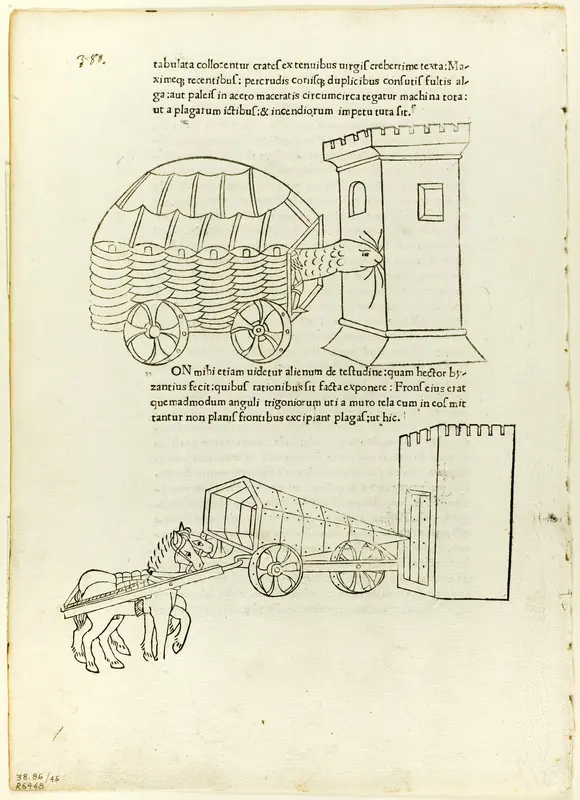 3·8º.
tabulata collocentur crateſ ex tenuibus uirgiſ creberrime texta: Ma-
ximeq; recentibuſ: percrudis coriiſq; duplicibus conſutiſ fultis al-
ga: aut paleiſ in aceto maceratis circumcirca tegatur machina tota:
ut a plagarum ictibuſ: & incendiorum impetu tuta ſit.
ON mihi etiam uidetur alienum de teſtudine: quam hector by-
zantius fecit: quibuſ rationibus ſit facta exponere: Frons eius erat
quemadmodum anguli trigoniorum uti a muro tela cum in eoſ mit
tantur non planiſ frontibus excipiant plagaſ; ut hic.
38.86/45
R6948